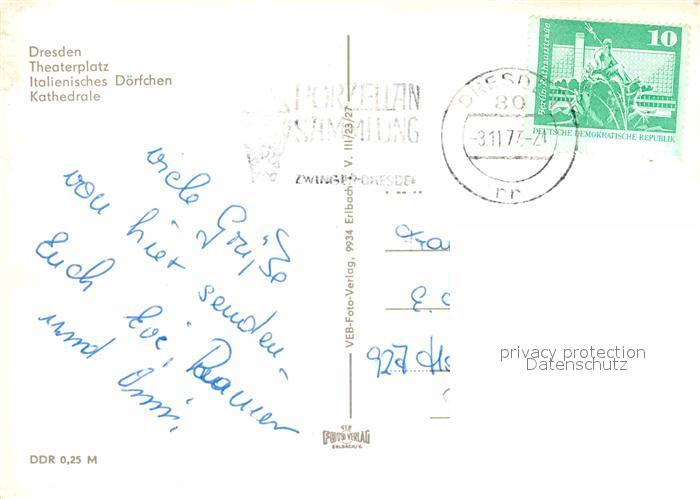 Dresden
Theaterplatz
Italienisches Dörfchen
Kathedrale
PORZELLAN
SAMMLUNG
ZWINGER-DRESDEN
DRESDEN
80
-3.11.77-21
rr
10
Berlin Rathausstraße
DEUTSCHE DEMOKRATISCHE REPUBLIK
viele Grüße
von hier senden
Euch Evi, Rainer
und Omi.
VEB-Foto-Verlag, 9934 Erlbach V. III/23/27
E.
927
privacy protection
Datenschutz
FOTO VERLAG
ERLBACH/V.
DDR 0,25 M